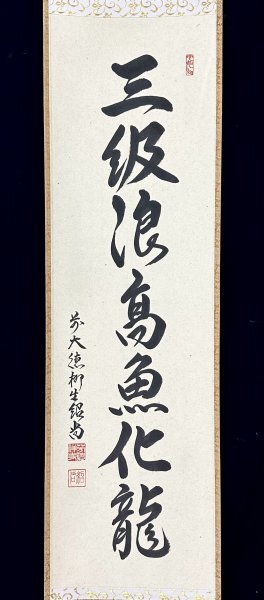 三級浪高魚化龍
前大徳柳生紹尚